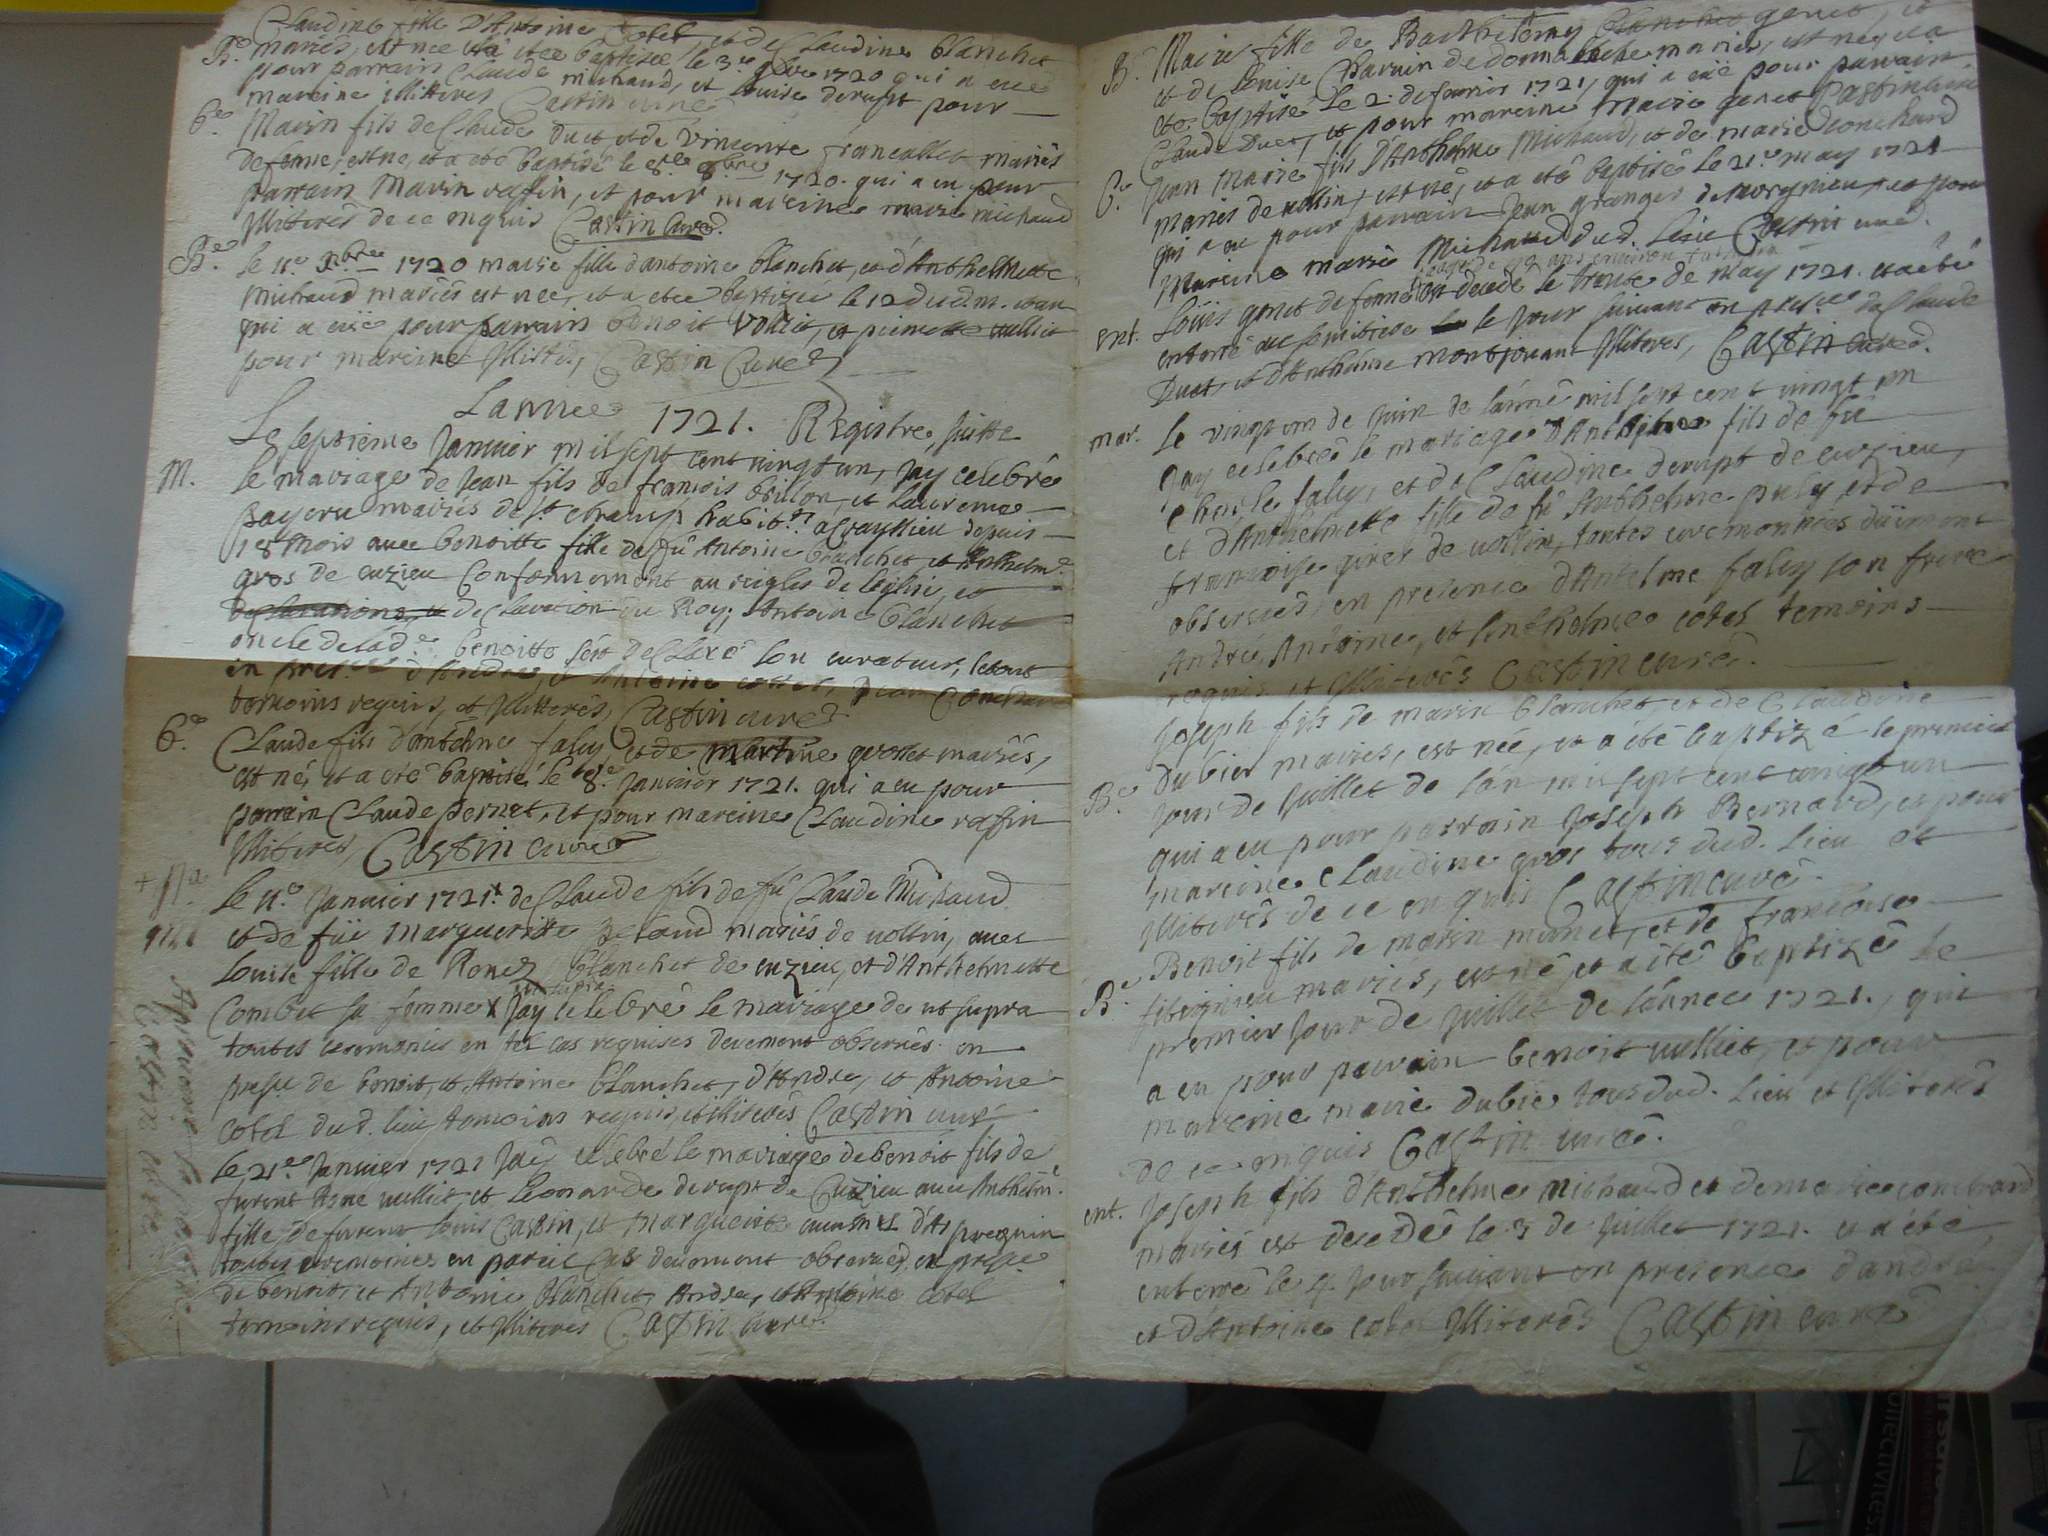 Claudine fille D'Antoine Cotel, et de Claudine blanchet
Be. mariés, est née et a etee baptisée le 3.e 1720 qui a euë
pour parrain Claude michaud, et Louise derupt pour
mareine illitteres Castin curé
be. Marin fils de Claude Duet, et de Vincente francallet mariés
de fenne, est né, et a eté baptisé le 8bre 1720. qui a eu pour
parrain Marin raffin, et pour mareine marie michaud
illitterés de ce enquis Castin Curé.
Be. Le 11.e 1720 marie fille d'antoine blanchet, et d'Anthelmette
Michaud mariés est nee, et a etee baptizée le 12 dud. m. et an
qui a euë pour parrain benoit Volliet, et pierrette
pour mareine illitt., Castin Curé
L'année 1721. Registre, suitte
Le septieme Janvier mil sept cent vingt un, Jay celebré
M. Le mariage de Jean fils de francois brillon, et Laurence
payeru mariés de st. habit.t a depuis
18 mois avec benoitte fille de fû Antoine blanchet, et Anthelm.e
gros de cuzieu Conformement au reigles de l'eglise, et
declarations, et declaration du Roy; Antoine blanchet
oncle de lad.e benoitte s'est declaré son curateur, le tout
en pres.ce d'Andre, et Antoine cottel,
temoins requis, et illitterés, Castin curé
be. Claude fils d'antelme faley et de martine grosset mariés,
est né, et a eté baptisé le 8.e Janvier 1721. qui a eu pour
parrain Claude pernet, et pour mareine Claudine raffin
illiterés, Castin curé
Le 11.e Janvier 1721. de Claude fils de fû Claude Michaud
et de fûe Marguerite mariés de vollin, avec
Louise fille de René blanchet de cuzieu, et d'Anthelmette
Combet sa femme Jay celebré le mariage de ut supra
toutes ceremonies en tel cas requises deuement observées en
pres.ce de benoit, et Antoine blanchet, d'Andre, et Antoine
cotel dud. lieu temoins requis, et illiterés Castin curé
Le 21.e Janvier 1721 Jay celebré le mariage de benoit fils de
furent Aimé vulliet et Leonarde derupt de Cuzieu avec Anthelm.e
fille de furent Louis Castin, et marguerite d'
toutes ceremonies en pareil cas deuement observées, en pres.ce
de benoit, et Antoine blanchet, Andre, et Antoine cotel
temoins requis, et illiterés Castin curé.
Castin curé
B. Marie fille de Barthelemy blanchet genet, et
et de Louise Charvin de donna mariés, est née, et a
eté baptisé Le 2. de fevrier 1721, qui a euë pour parrain
Claude Duet, et pour mareine Marie genet Castin curé
b. Jean Marie fils d'Anthelme Michaud, et de marie conchard
mariés de vollin, est né, et a eté baptisé le 21.e may 1721
qui a eu pour parrain Jean granger de morgnieu, et pour
Mareine marie Michaud dud. Lieu Castin curé.
ans environ
ent. Louis genet de fenne est decedé le trente de may 1721. et a eté
enterré au semitiere le jour suivant en pres.ce de Claude
Duet, et d'Anthelme montjouant illiterés, Castin curé.
mar. Le vingt un de Juin de l'année mil sept cent vingt un
Jay celebré le mariage d'Anthelme fils de fû
Charle faley, et de Claudine derupt de cuzieu,
et d'Anthelmette fille de fû Anthelme puley, et de
francoise girer de vollin, toutes ceremonies düement
observées, en presence d'Antelme faley son frere
André, Antoine, et Anthelme cotel temoins
requis et illiterés Castin curé.
Joseph fils de marin blanchet et de Claudine
Be. dubier mariés, est née, et a été baptizé le premier
Jour de Juillet de l'an mil sept cent vingt un
qui a eu pour parrain Joseph Bernard, et pour
mareine Claudine gros tous dud. Lieu et
illiterés de ce enquis Castin curé.
Be. Benoit fils de marin munet, et de francoise
mariés, est né, et a eté baptizé le
premier Jour de Juillet de l'année 1721., qui
a eu pour parrain benoit vulliet, et pour
mareine marie dubie tous dud. Lieu et illiterés
de ce enquis Castin curé.
ent. Joseph fils d'Anthelme michaud et de marie conchard
mariés est decedé le 3 de Juillet 1721. et a été
enterré le 4. jour suivant en presence d'andré
et d'Antoine cotel illiterés Castin curé